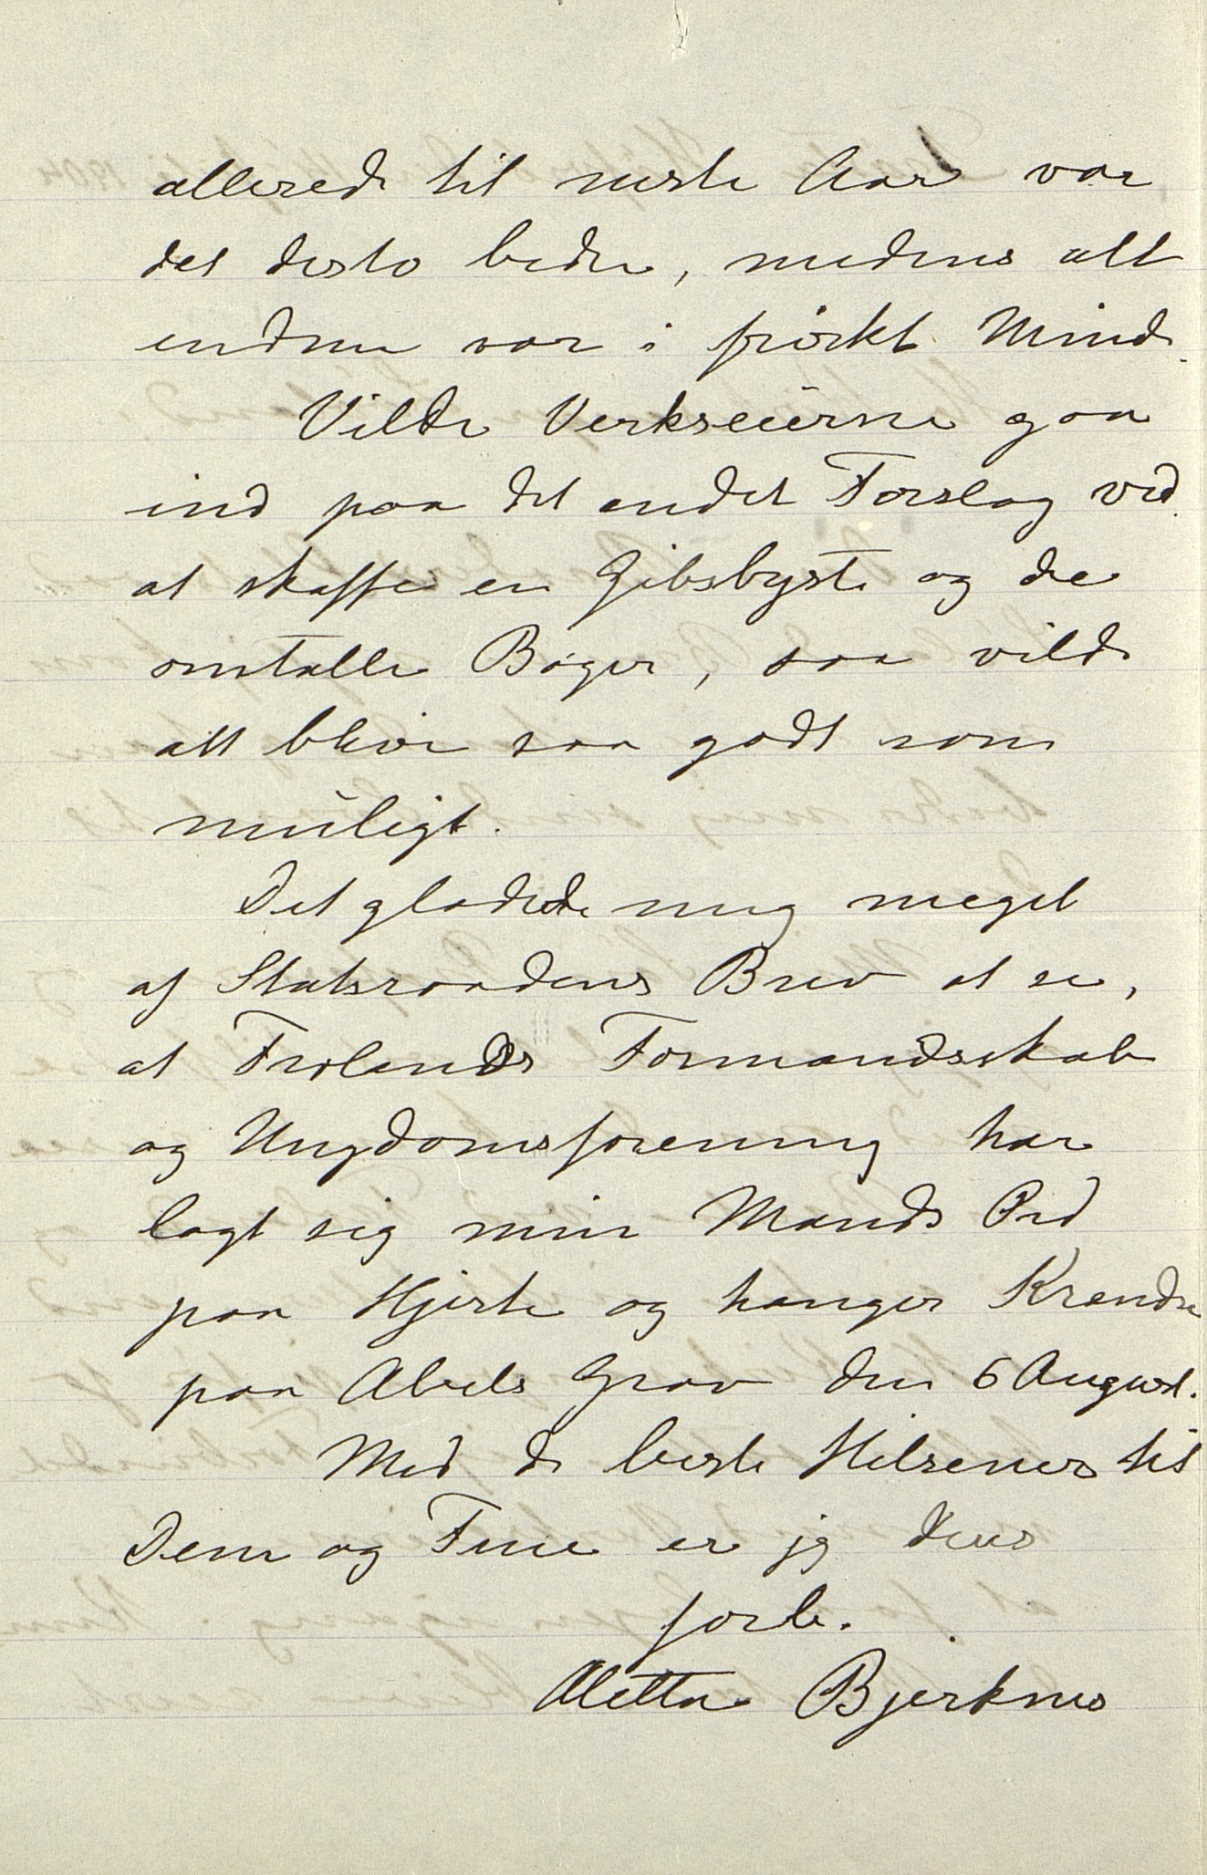 allerede til neste Aar var
det desto bedre, medens alt
endnu var i friskt Minde.
Vilde Verkseierne gaa
ind paa det andet Forslag ved
at skaffe en Gibsbyste og de
omtalte Bøger, saa vilde
alt blive saa godt som
muligt.
Det glædede mig meget
af Statsraadens Brev at se,
at Frolands Formandsskab
og Ungdomsforening har
lagt sig min Mands Ord
paa Hjerte og hænger Krandse
paa Abels Grav den 6 August.
Med de beste Hilsener til
Dem og Frue er jeg deres
forb.
Aletta Bjerknes